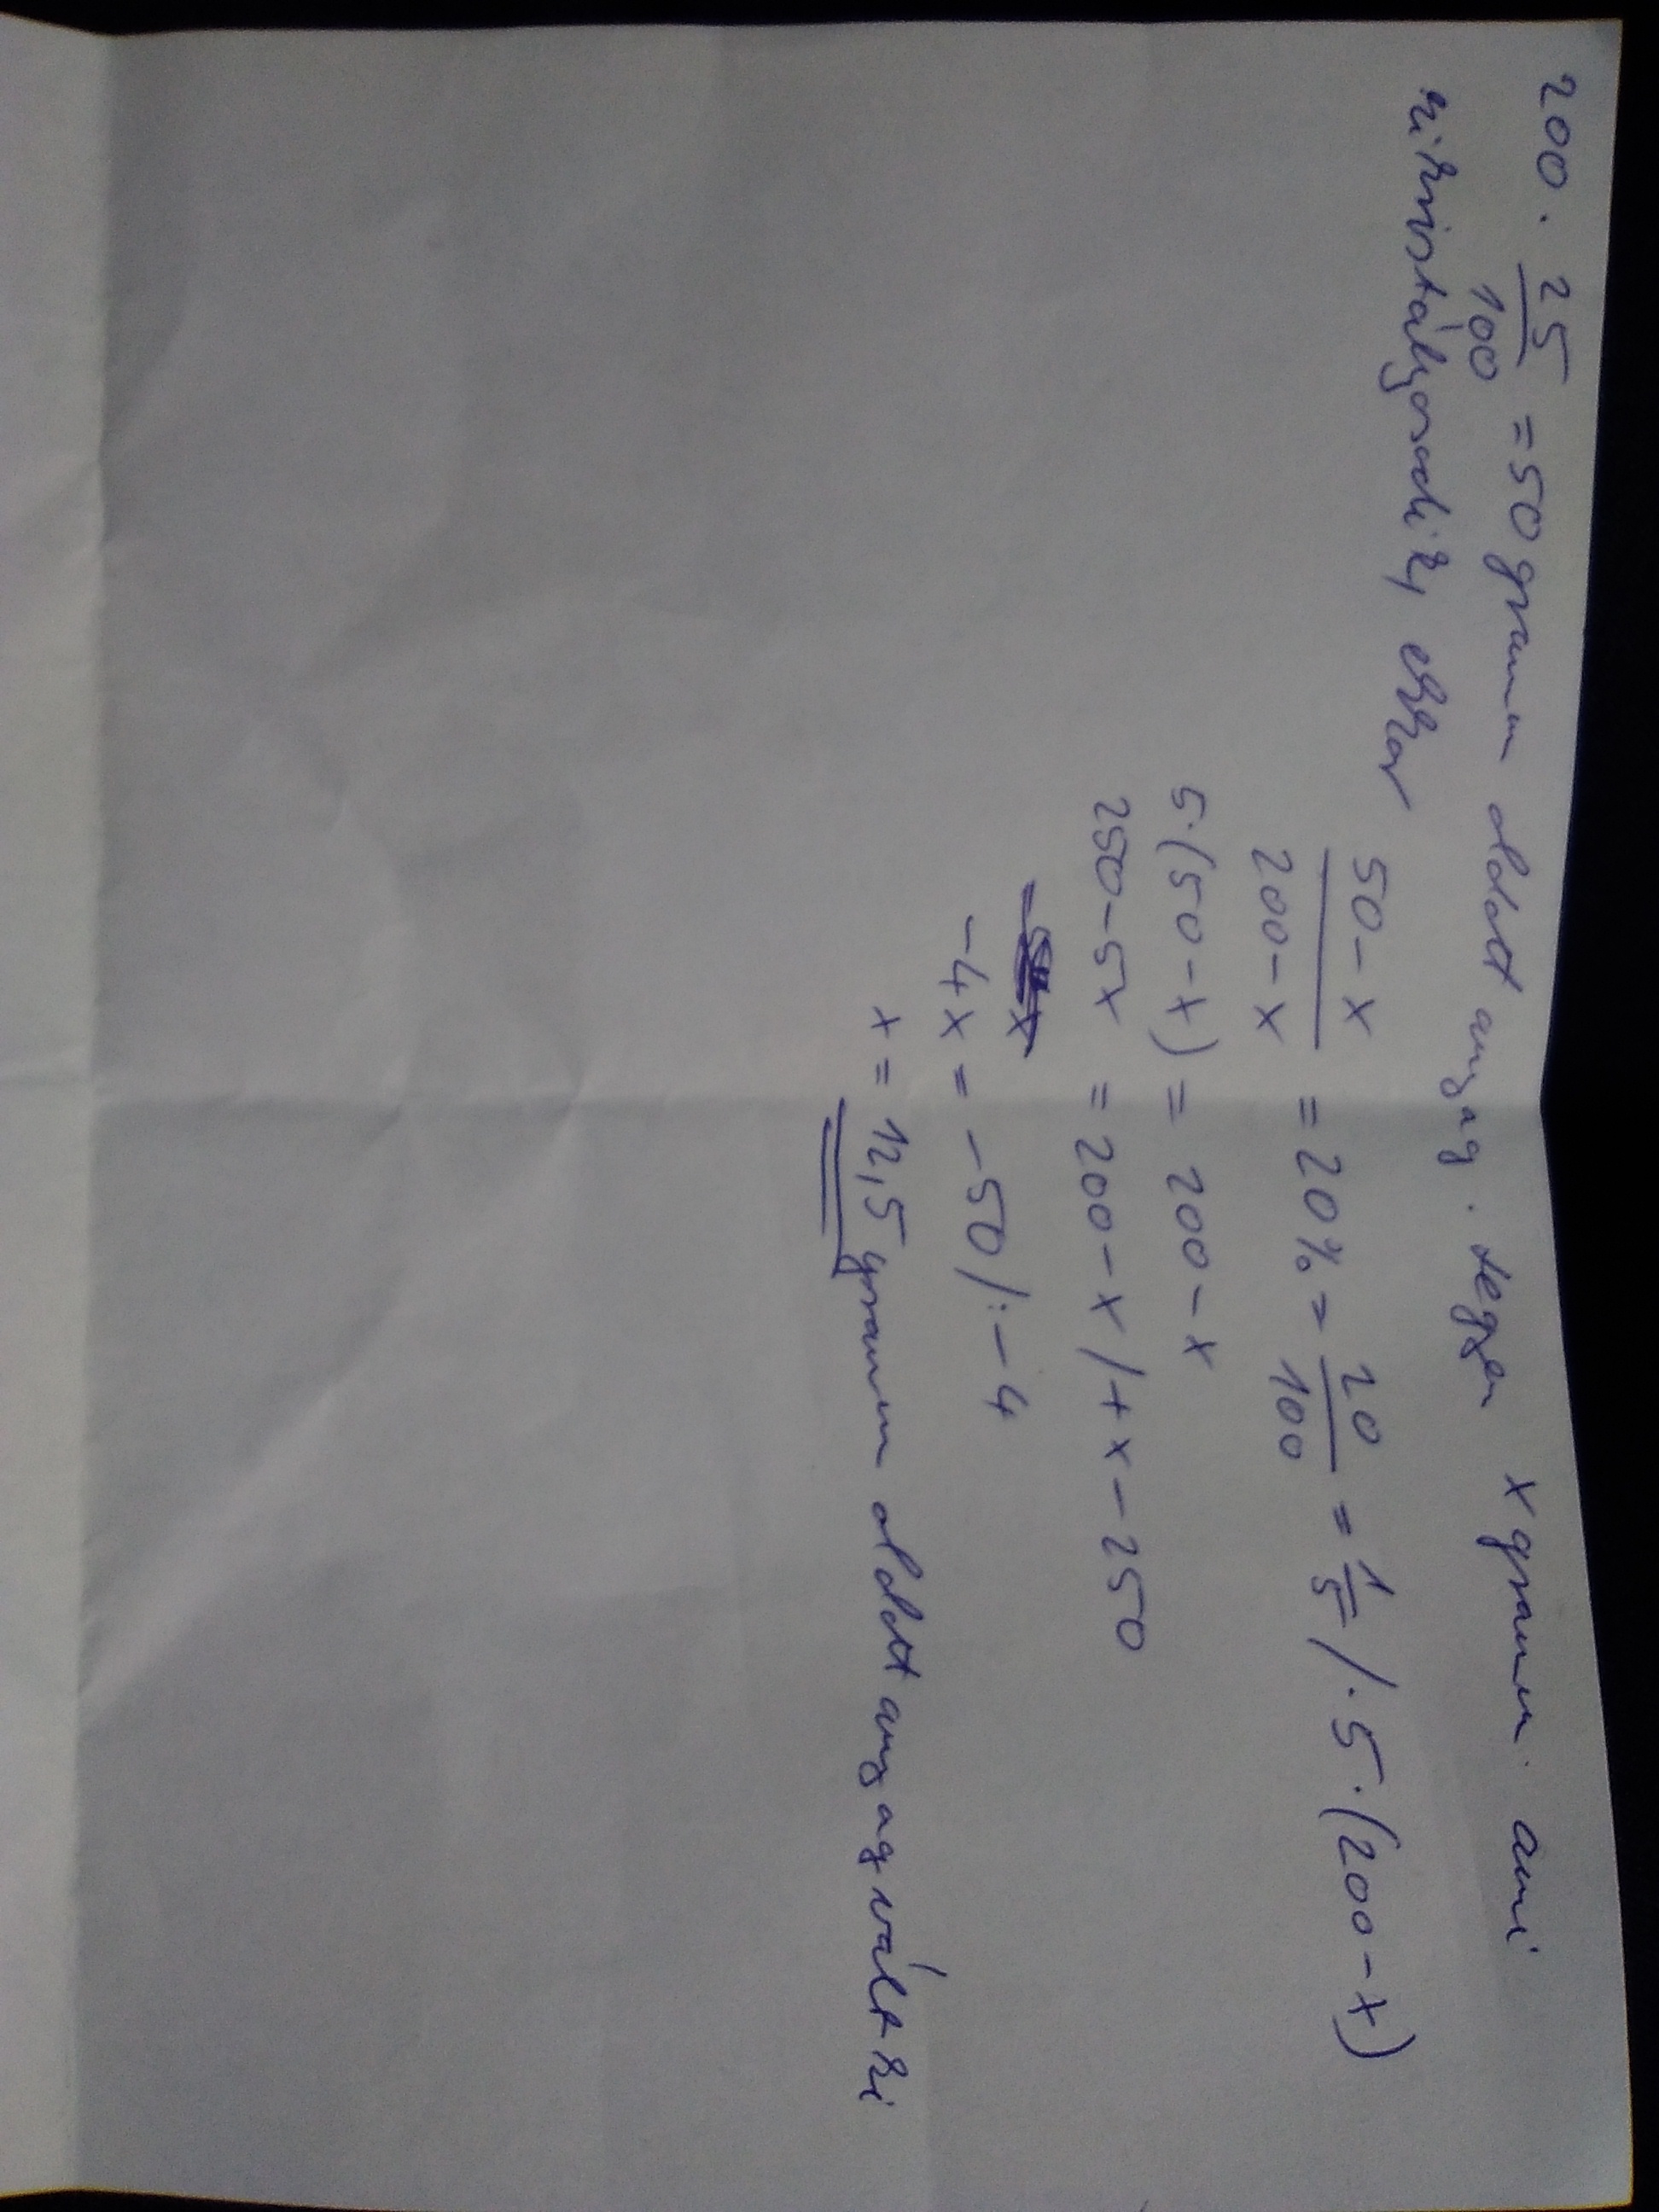 200 · 25/100 = 50 gramm oldott anyag. legyen x gramm ami
kikristályosodik, ekkor
50-x/200-x = 20% = 20/100 = 1/5 /·5·(200-x)
5·(50-x) = 200-x
250-5x = 200-x /+x-250
-4x = -50 /:-4
x = 12,5 gramm oldott anyag vált ki